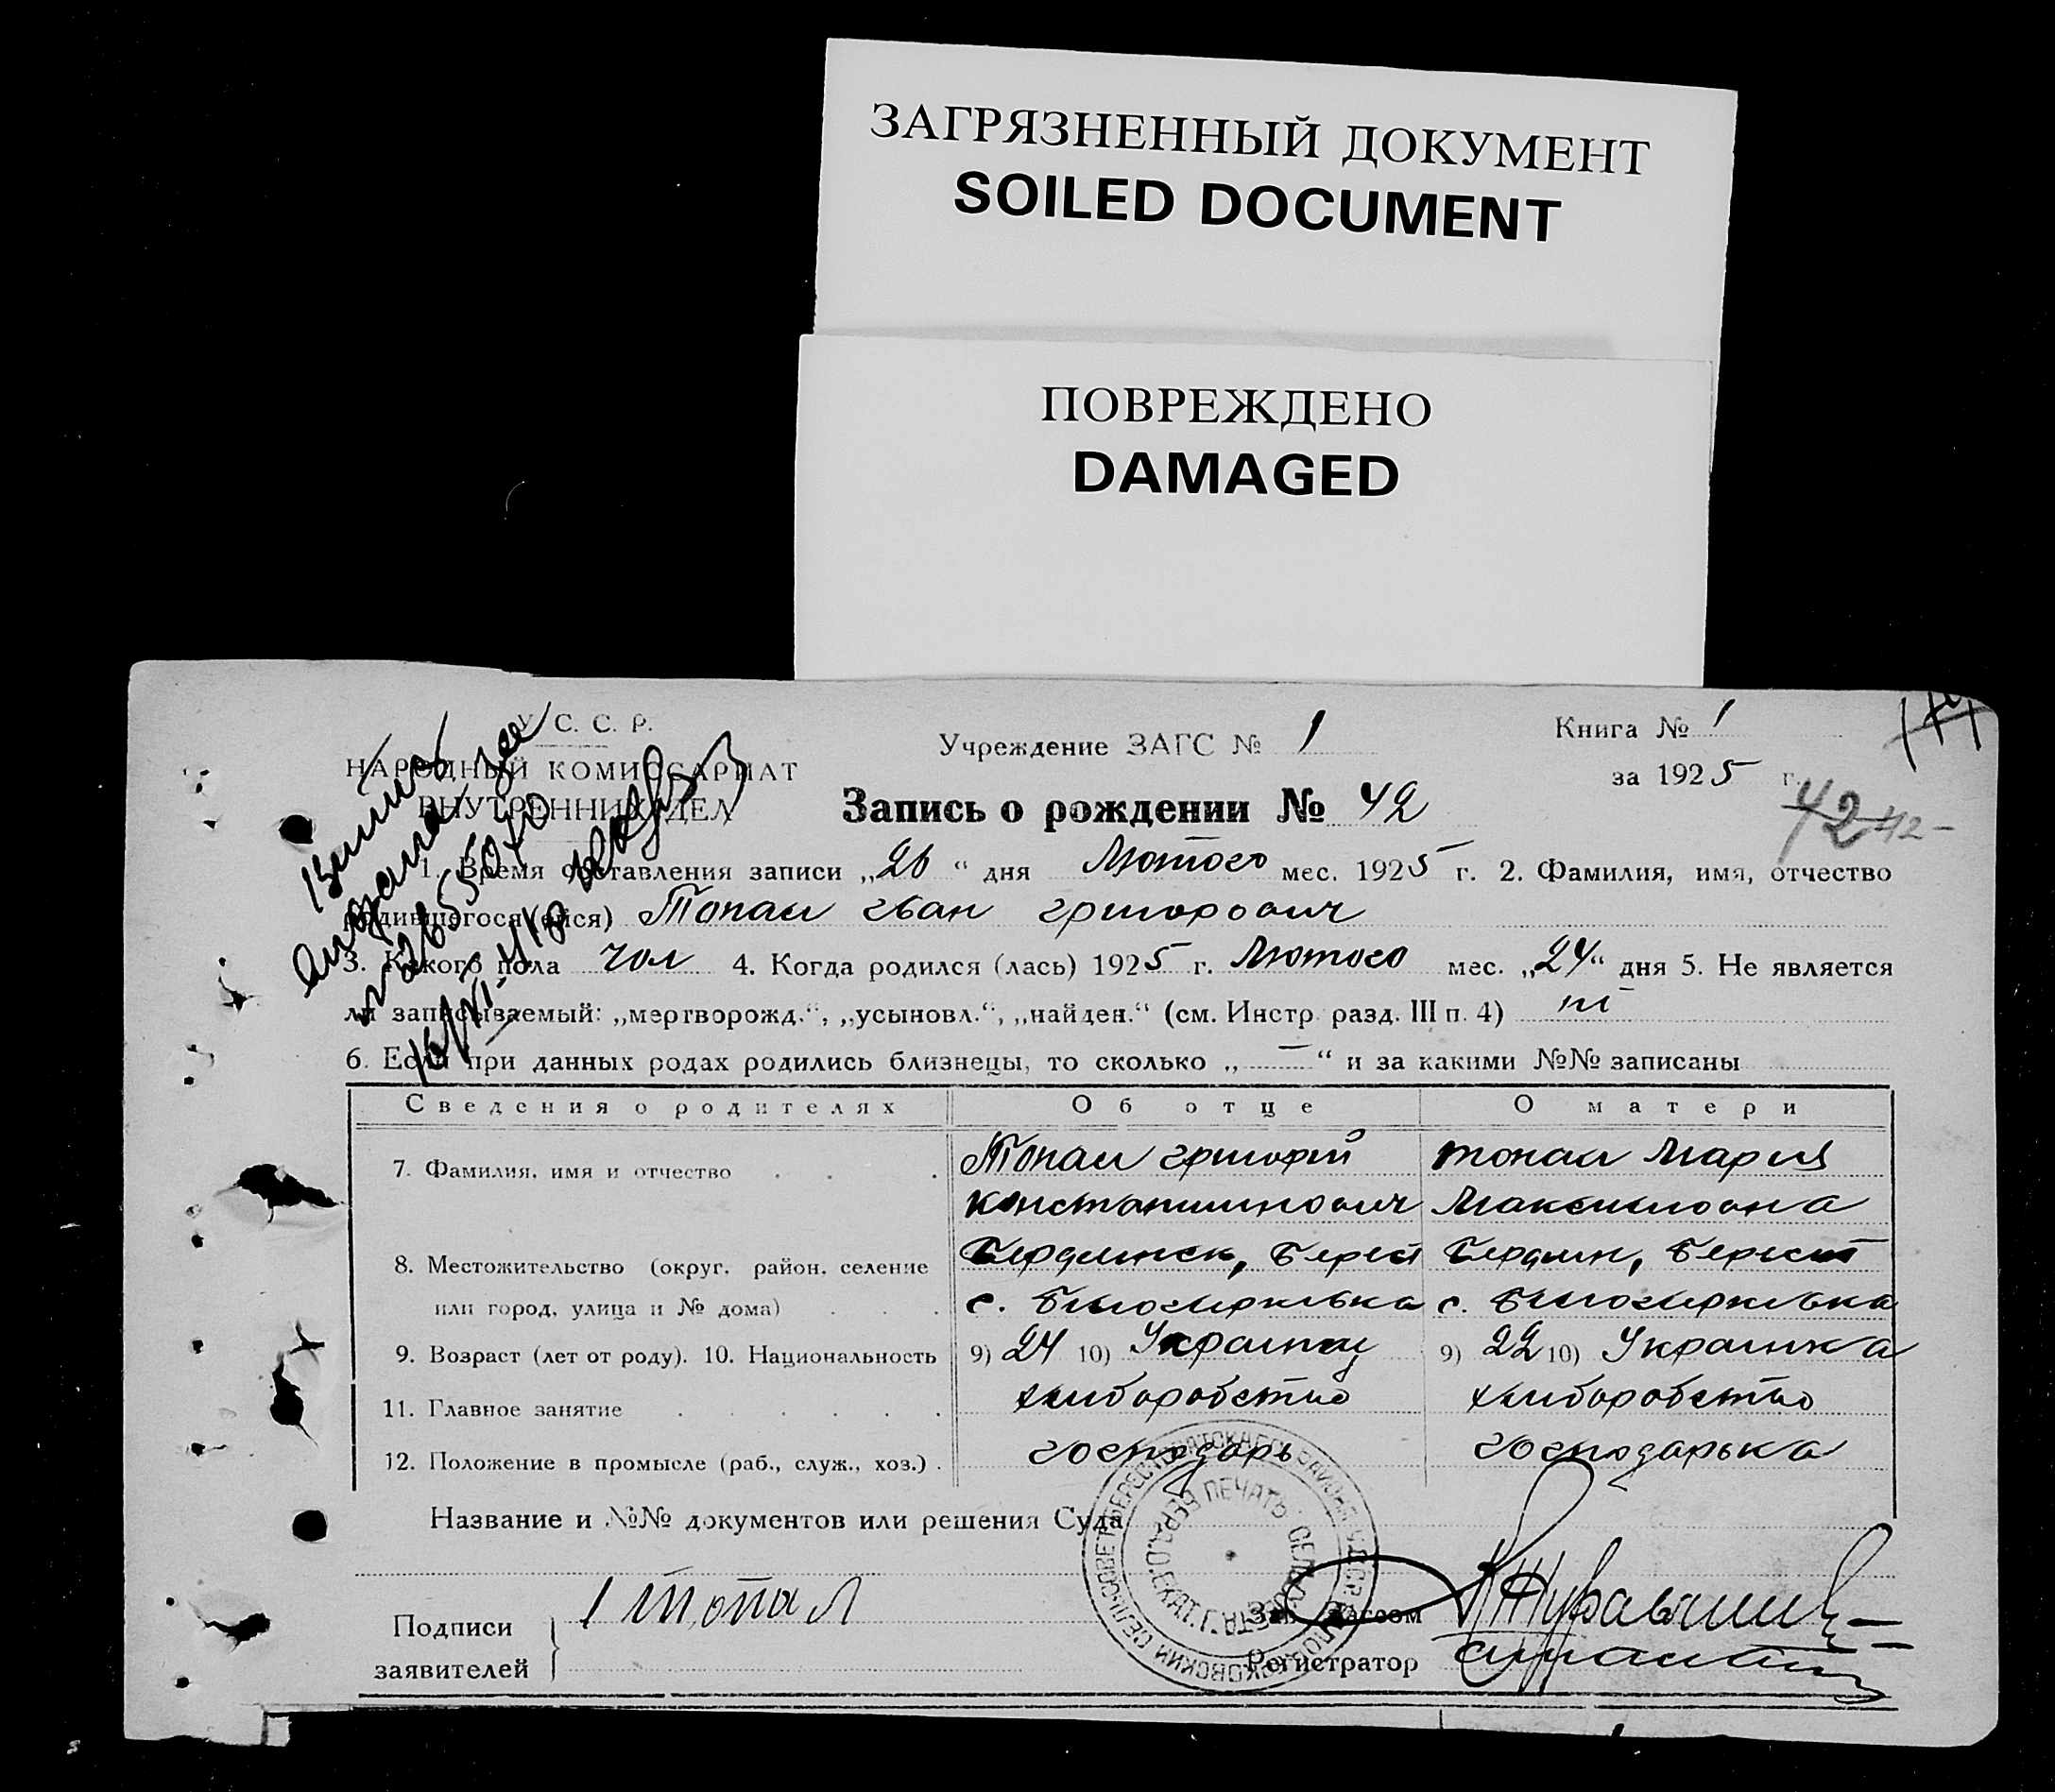 ЗАГРЯЗНЕННЫЙ ДОКУМЕНТ
SOILED DOCUMENT
ПОВРЕЖДЕНО
DAMAGED
У. С. С. Р.
НАРОДНЫЙ КОМИССАРИАТ
ВНУТРЕННИХ ДЕЛ
Учреждение ЗАГС № 1
Книга № 1
за 1925 г.
Запись о рождении № 42
42
1. Время составления записи „26“ дня Лютого мес. 1925 г. 2. Фамилия, имя, отчество
родившегося (ейся) Топал Іван Григорович
3. Какого пола чол 4. Когда родился (лась) 1925 г. Лютого мес. „24“ дня 5. Не является
ли записываемый: „мертворожд.“, „усыновл.“, „найден.“ (см. Инстр. разд. III п. 4) ні
6. Если при данных родах родились близнецы, то сколько „ — “ и за какими №№ записаны
Сведения о родителях Об отце О матери
7. Фамилия, имя и отчество Топал Григорій Топал Мария
Константинович Максимовна
8. Местожительство (округ, район, селение Бердянськ, Берест Бердян, Берест
или город, улица и № дома) с. Білоцерківка с. Білоцерківка
9. Возраст (лет от роду). 10. Национальность 9) 24 10) Украінец 9) 22 10) Украінка
11. Главное занятие хліборобство хліборобство
12. Положение в промысле (раб., служ., хоз.) господарь господарька
Название и №№ документов или решения Суда
Подписи
заявителей
Топал
Зав. Загсом
Регистратор